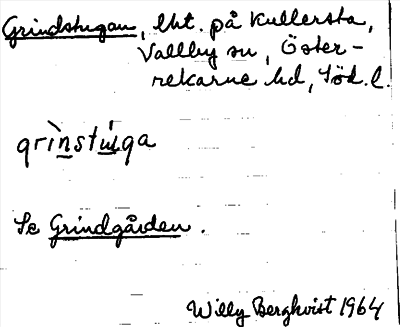 Grindstugan, lht. på Kullersta,
Vallby sn, Öster-
rekarne hd, Söd. l.
grìnstúga
Se Grindgården.
Willy Bergkvist 1964